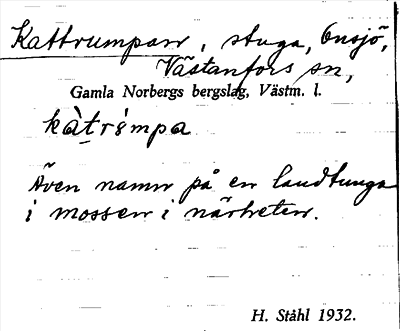 Kattrumpan, stuga, Onsjö,
Västanfors sn,
Gamla Norbergs bergslag, Västm. l.
Även namn på en landtunga
i mossen i närheten.
H. Ståhl 1932.